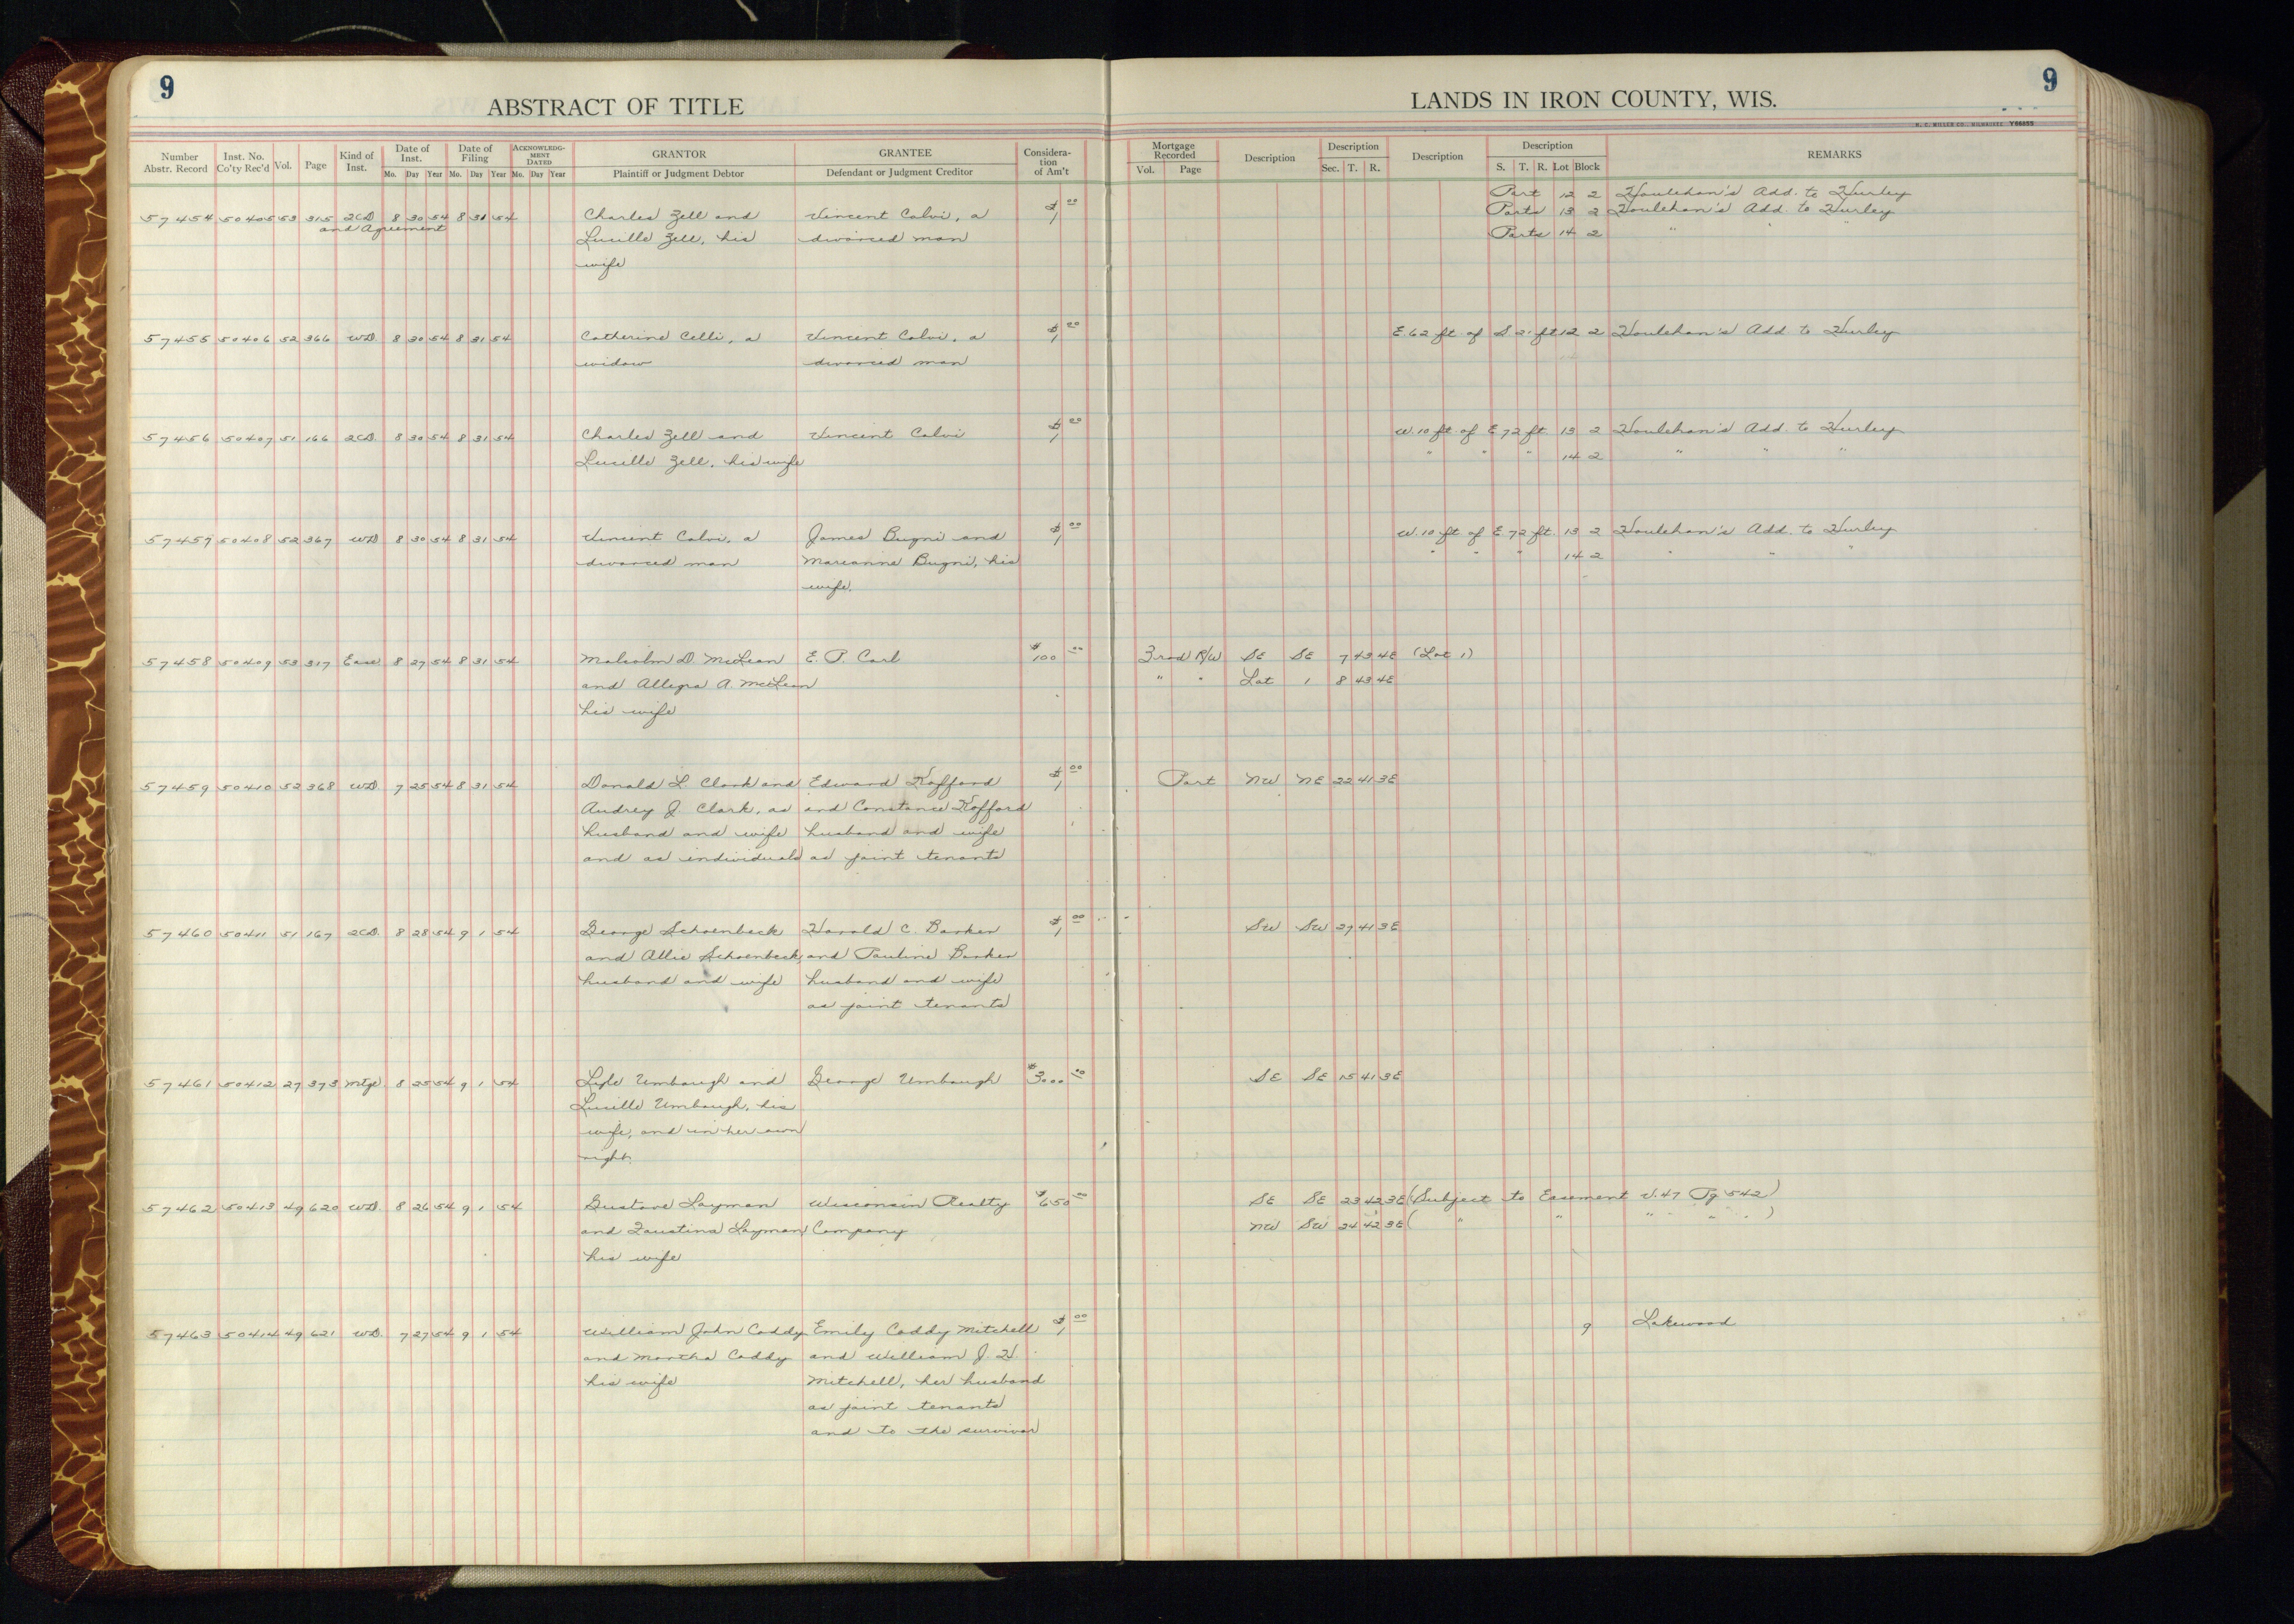 9
9
ABSTRACT OF TITLE
LANDS IN IRON COUNTY, WIS.
H. C. MILLER CO., MILWAUKEE Y66655
Number Abstr. Record Inst. No. Co'ty Rec'd Vol. Page Kind of Inst. Date of Inst. Mo. Day Year Date of Filing Mo. Day Year ACKNOWLEDGMENT DATED Mo. Day Year GRANTOR Plaintiff or Judgment Debtor GRANTEE Defendant or Judgment Creditor Consideration of Am't Mortgage Recorded Vol. Page Description Description Sec. T. R. Description Description S. T. R. Lot Block REMARKS
Part 12 2 Houlehan's Add. to Hurley
57454 50405 53 315 2CD 8 30 54 8 31 54 Charles Zell and Vincent Calvi, a $1 00 Parts 13 2 Houlehan's Add. to Hurley
and Agreement Lucille Zell, his divorced man Parts 14 2 " " "
wife
57455 50406 52 366 WD 8 30 54 8 31 54 Catherine Celli, a Vincent Calvi, a $1 00 E. 62 ft of S. 21 ft 12 2 Houlehan's Add. to Hurley
widow divorced man
57456 50407 51 166 2CD. 8 30 54 8 31 54 Charles Zell and Vincent Calvi $1 00 W. 10 ft of E 72 ft. 13 2 Houlehan's Add. to Hurley
Lucille Zell, his wife " " " 14 2 " " "
57457 50408 52 367 WD 8 30 54 8 31 54 Vincent Calvi, a James Bugni and $1 00 W. 10 ft of E. 72 ft. 13 2 Houlehan's Add. to Hurley
divorced man Marianne Bugni, his " " " 14 2 " " "
wife.
57458 50409 53 317 Ease 8 27 54 8 31 54 Malcolm D. McLean E. P. Carl $100 00 3 rod R/W SE SE 7 43 4E (Lot 1)
and Allegra A. McLean " " Lot 1 8 43 4E
his wife
57459 50410 52 368 WD. 7 25 54 8 31 54 Donald L. Clark and Edward Kofford $1 00 Part NW NE 22 41 3E
Audrey J. Clark, as and Constance Kofford
husband and wife husband and wife
and as individuals as joint tenants
57460 50411 51 167 2CD. 8 28 54 9 1 54 George Schoenbeck Harold C. Barker $1 00 SW SW 27 41 3E
and Allie Schoenbeck, and Pauline Barker
husband and wife husband and wife
as joint tenants
57461 50412 27 373 Mtge. 8 25 54 9 1 54 Lyle Umbaugh and George Umbaugh $3000 00 SE SE 15 41 3E
Lucille Umbaugh, his
wife, and in her own
right.
57462 50413 49 620 WD. 8 26 54 9 1 54 Gustave Layman Wisconsin Realty $650 00 SE SE 23 42 3E (Subject to Easement V. 47 Pg 542)
and Faustina Layman Company NW SW 24 42 3E ( " " " " " )
his wife
57463 50414 49 621 WD. 7 27 54 9 1 54 William John Caddy Emily Caddy Mitchell $1 00 9 Lakewood
and Martha Caddy and William J. H.
his wife Mitchell, her husband
as joint tenants
and to the survivor